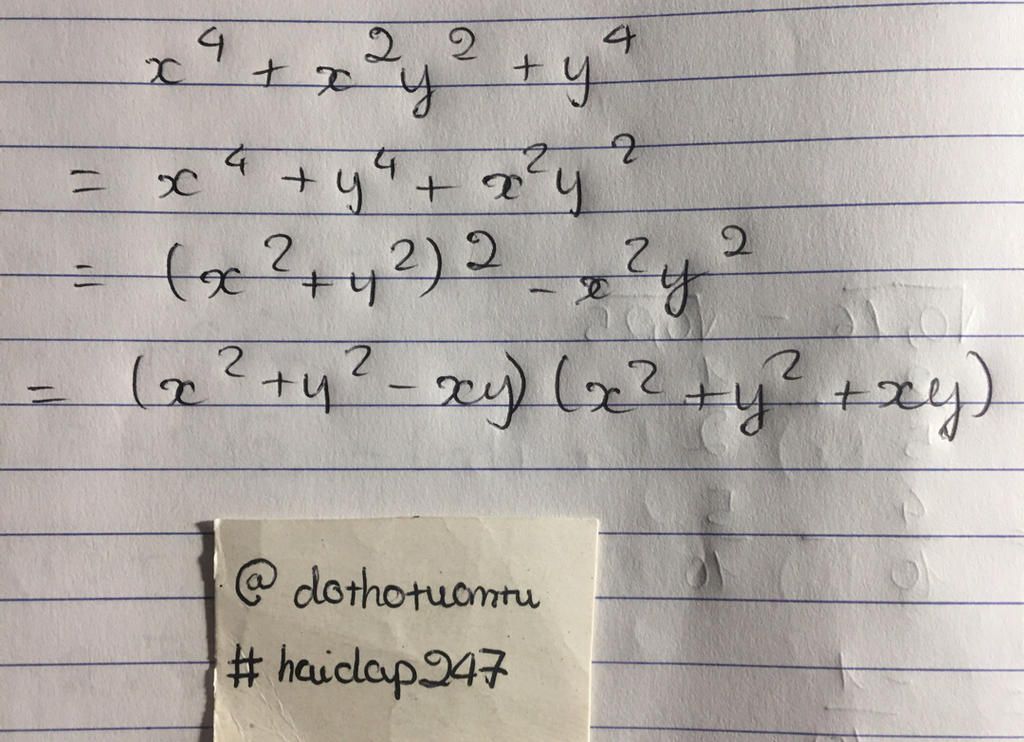 x⁴ + x²y² + y⁴
= x⁴ + y⁴ + x²y²
= (x² + y²)² - x²y²
= (x² + y² - xy) (x² + y² + xy)
@ dothotuamtu
# haidap247